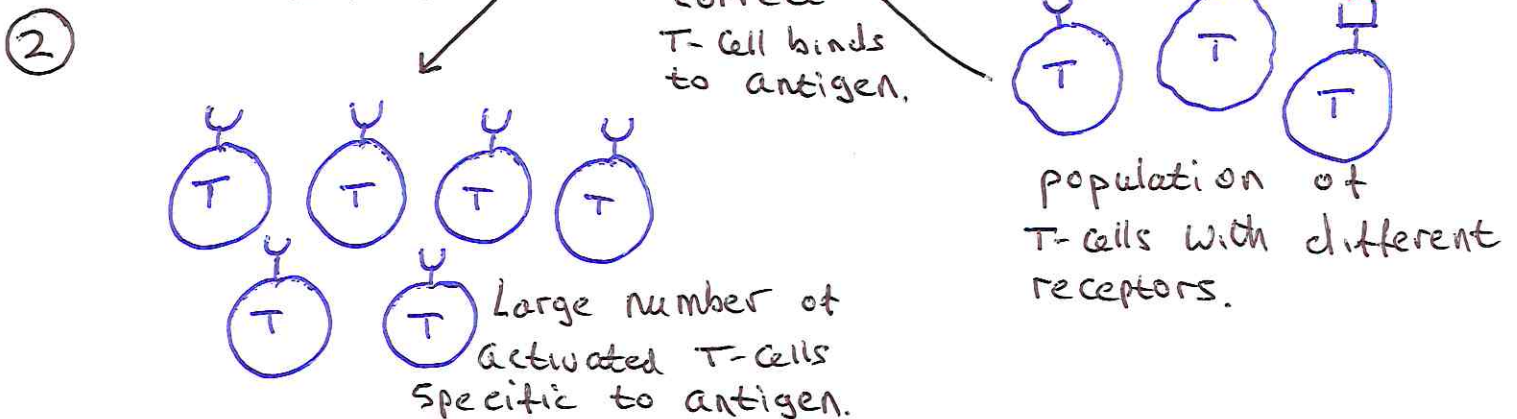 2
correct
T-Cell binds
to antigen.
T
T
T
population of
T-cells with different
receptors.
T
T
T
T
T
T
Large number of
activated T-cells
Specific to antigen.